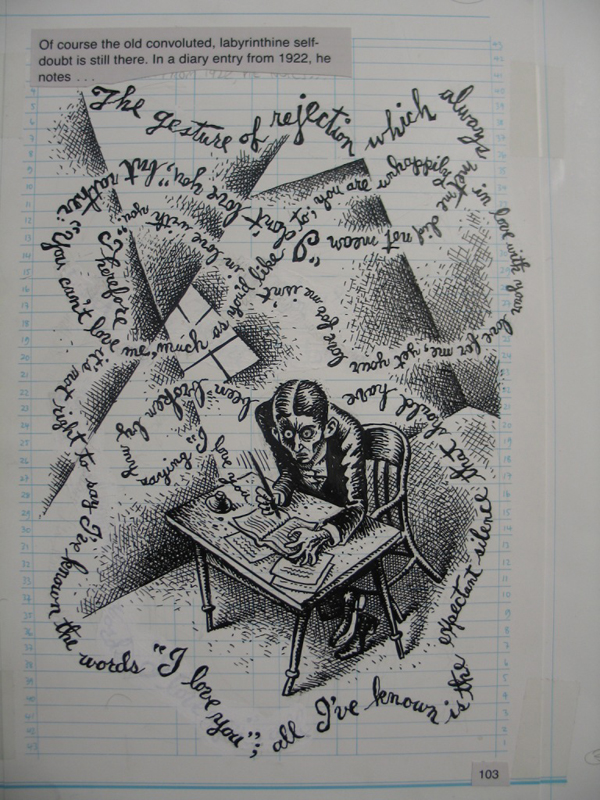 Of course the old convoluted, labyrinthine self-
doubt is still there. In a diary entry from 1922, he
notes . . .
The gesture of rejection which always
met me did not mean
"I don't love you," but rather:
"You can't love me, much as you'd like
to; you are unhappily
in love with your love for me, yet your
love for me isn't
in love with you."
Therefore
it's not right to say I've known the words "I love you"; all I've known is the expectant silence that should have
been broken by my saying "I love you"
103